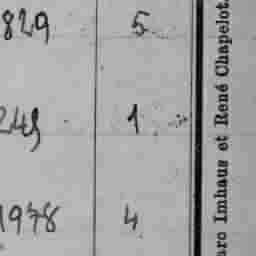 829 5
249 1
1978 4
arc Imhaus et René Chapelot.